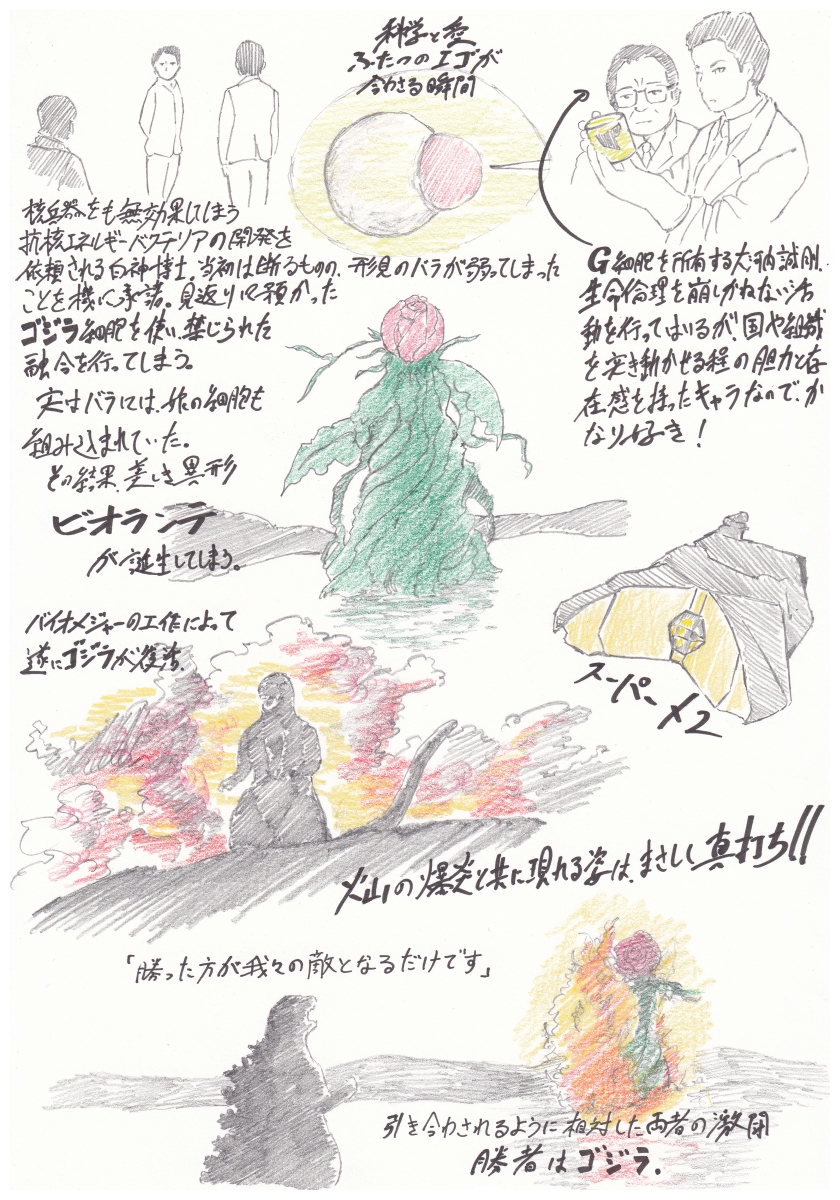 科学と愛
ふたつのエゴが
合わさる瞬間
核兵器をも無効果してしまう
抗核エネルギーバクテリアの開発を
依頼される白神博士。当初は断るものの、形見のバラが弱ってしまった
ことを機に承諾。見返りに預かった
ゴジラ細胞を使い、禁じられた
融合を行ってしまう。
実はバラには、娘の細胞も
組み込まれていた。
その結果、美しき異形
ビオランテ
が誕生してしまう。
G細胞を所有する大河内誠剛、
生命倫理を崩しかねない活
動を行ってはいるが、国や組織
を突き動かせる程の胆力と存
在感を持ったキャラなので、か
なり好き!
スーパーX2
バイオメジャーの工作によって
遂にゴジラが復活。
火山の爆炎と共に現れる姿は、まさしく真打ち!!
「勝った方が我々の敵となるだけです」
引き合わされるように相対した両者の激闘
勝者はゴジラ.